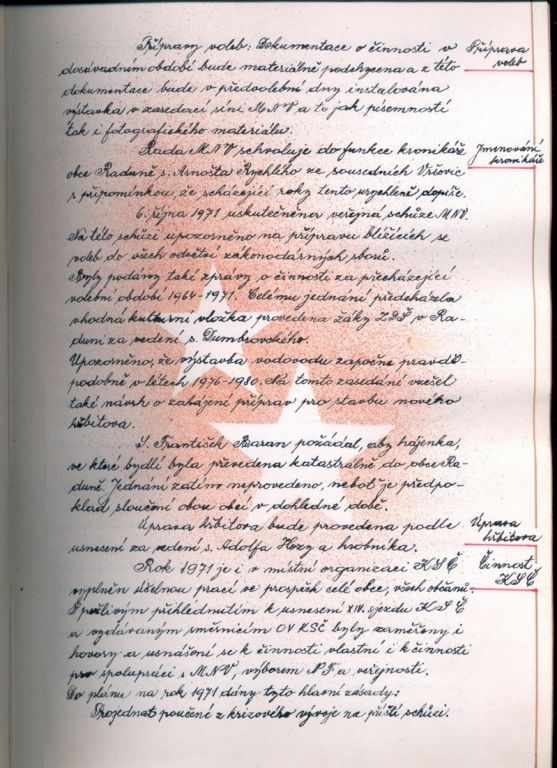 Přípravy voleb: Dokumentace o činnosti v
Příprava
voleb
dosavadním období bude materiálně podchycena a z této
dokumentace bude v předvolební dny instalována
výstavka v zasedací síni MNV a to jak písemností
tak i fotografického materiálu.
Rada MNV schvaluje do funkce kronikáře
Jmenování
kronikáře
obce Raduně s. Arnošta Rychlého ze sousedních Vršovic
s připomínkou, že scházející roky tento urychleně dopíše.
6. října 1971 uskutečněna veřejná schůze MNV.
Na této schůzi upozorněno na přípravu blížících se
voleb do všech odvětví zákonodárných sborů.
Byly podány také zprávy o činnosti za přecházející
volební období 1964-1971. Celému jednání předcházela
vhodná kulturní vložka provedena žáky ZDŠ v Ra-
duni za vedení s. Dumbrovského.
Upozorněno, že výstavba vodovodu započne pravdě-
podobně v létech 1976-1980. Na tomto zasedání vzešel
také návrh o zahájení příprav pro stavbu nového
hřbitova.
S. František Baran požádal, aby hájenka,
ve které bydlí byla převedena katastrálně do obce Ra-
duně. Jednání zatím neprovedeno, neboť je předpo-
klad sloučení obou obcí v dohledné době.
Úprava hřbitova bude provedena podle
Úprava
hřbitova
usnesení za vedení s. Adolfa Hozy a hrobníka.
Rok 1971 je i v místní organizaci KSČ
Činnost
KSČ
vyplněn účelnou prací ve prospěch celé obce, všech občanů.
S pečlivým přihlédnutím k usnesení XIV. sjezdu KSČ
a vydávaným směrnicím OV KSČ byly zaměřeny i
hovory a usnášení se k činnosti vlastní i k činnosti
pro spolupráci s MNV, výborem NF a veřejností.
Do plánu na rok 1971 dány tyto hlavní zásady:
Projednat poučení z krizového vývoje na příští schůzi.